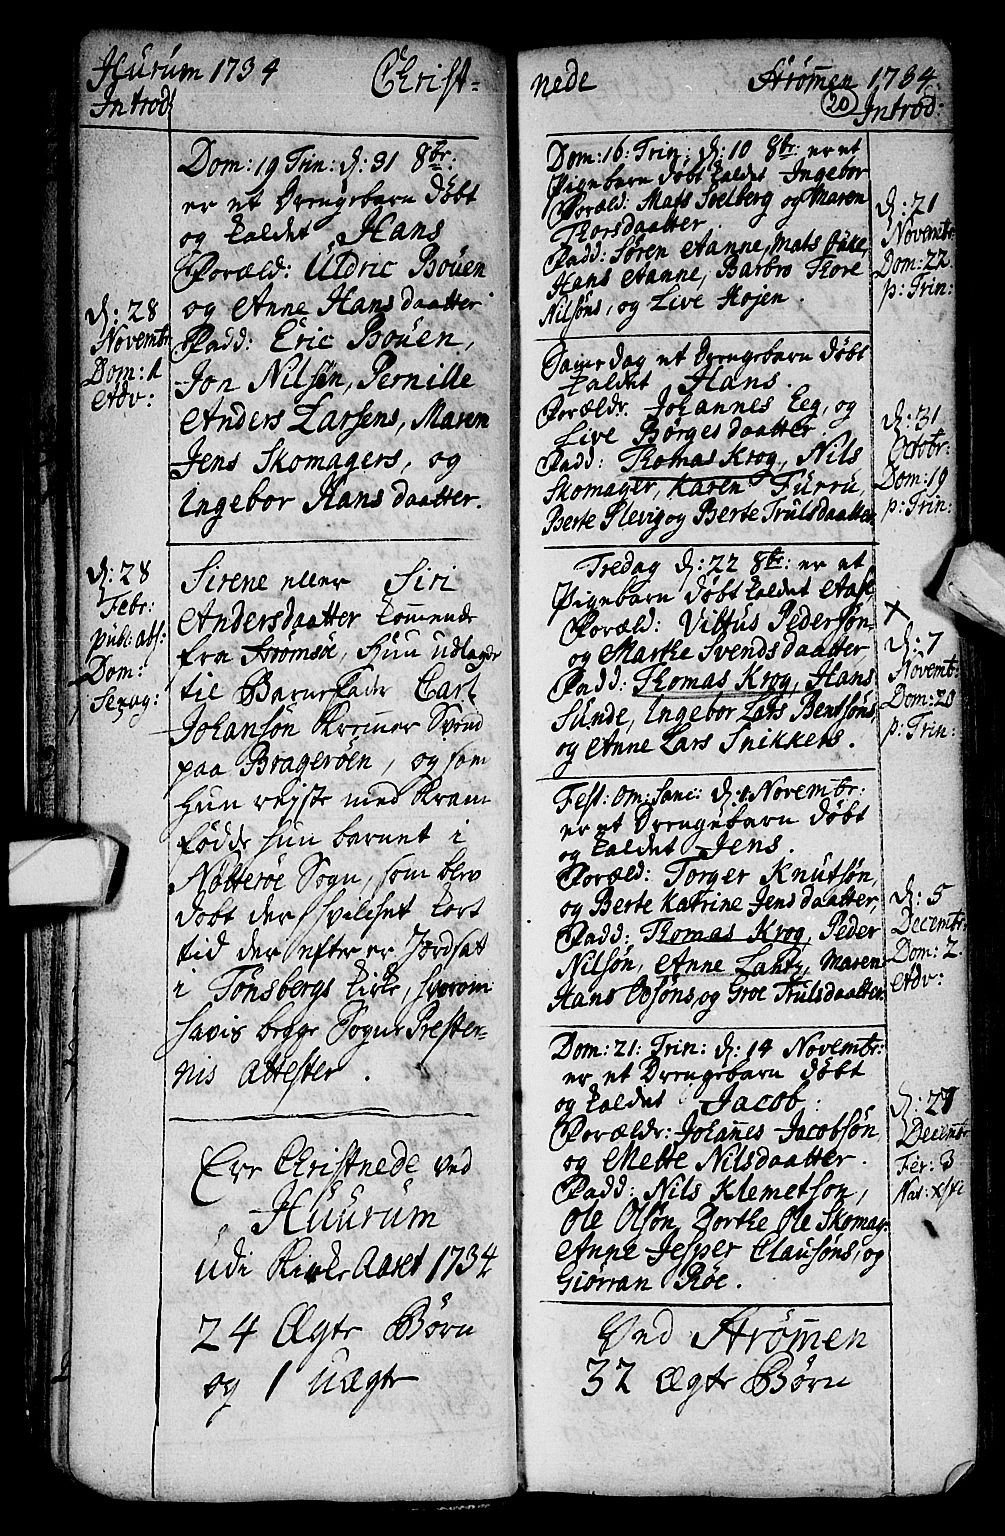 Hurum 1734 Christ-
Introd:
Dom: 19 Trin: d: 31 8br:
er et Drengebarn døbt
og kaldet Hans
Foræld: Uldric Boüen
og Anne Hansdaatter
Fadd: Eric Boüen,
Jon Nilsøn, Pernille
Anders Larsens, Maren
Jens Skomagers, og
Ingebor Hansdaatter.
d: 28
Novembr
Dom: 1
Adv:
Sirene eller Siri
Andersdaatter kommende
fra Strømsøe, Hun udlagde
til Barnefader Carl
Johansøn Kræmer Svend
paa Bragerøen, og som
hun reyste med Kram
fødde hun barnet i
Nøtterøe Sogn, som blev
døbt der, hvilchet kort
tid der efter er Jordsat
i Tønsbergs kirke, hvorom
havis begge Sogne Præster-
nis attester.
d: 28
Febr:
publ: abs:
Dom:
Sexag:
Ere Christnede ved
Huurum
udi Kirke Aaret 1734
24 Ægte Børn
og 1 uægte
nede Strømmen 1734
20
Introd:
Dom: 16: Trin: d: 10 8br: er et
Pigebarn døbt kaldet Ingebor
Foræld: Mats Solberg og Maren
Thorsdaatter
Fadd: Søren Aanne, Mats
Hans Aanne, Barbro Tore
Nilsøns, og Live Højen.
d: 21
Novembr
Dom: 22
p: Trin:
Samedag et Drengebarn døbt
kaldet Hans.
Forældr: Johannes Eeg, og
Live Børgesdaatter,
Fadd: Thomas Krog, Nils
Skomager, Karen Furru,
Berte Plevig og Berte Trulsdaatter
d: 31
Octobr:
Dom: 19
p: Trin:
Fredag d: 22 8br: er et
Pigebarn døbt kaldet Aase
Foræld: Vittus Pedersøn
og Marthe Svendsdaatter,
Fadd: Thomas Krog, Hans
Sunde, Ingebor Lars Bentsøns
og Anne Lars Snikkers.
d: 7
Novembr:
Dom: 20
p: Trin:
Fest: Om: Sanc: d: 1 Novembr:
er et Drengebarn døbt
og kaldet Jens.
Foræld: Torger Knutsøn,
og Berte Katrine Jensdaatter,
Fadd: Thomas Krog, Peder
Nilsøn, Anne Lantz, Maren
Hans Olsøns, og Groe Trulsdaatter
d: 5
Decembr:
Dom: 2.
Adv:
Dom: 21: Trin: d: 14 Novembr:
er et Drengebarn døbt
og kaldet Jacob.
Forældr: Johannes Jacobsøn,
og Mette Nilsdaatter.
Fadd: Nils Klemetsøn,
Ole Olsøn, Dorthe Ole Skomag:
Anne Jesper Clausøns, og
Giørran Røe.
d: 27
Decembr
Fer: 3
Nat: Xsti
Ved Strømmen
32 Ægte Børn